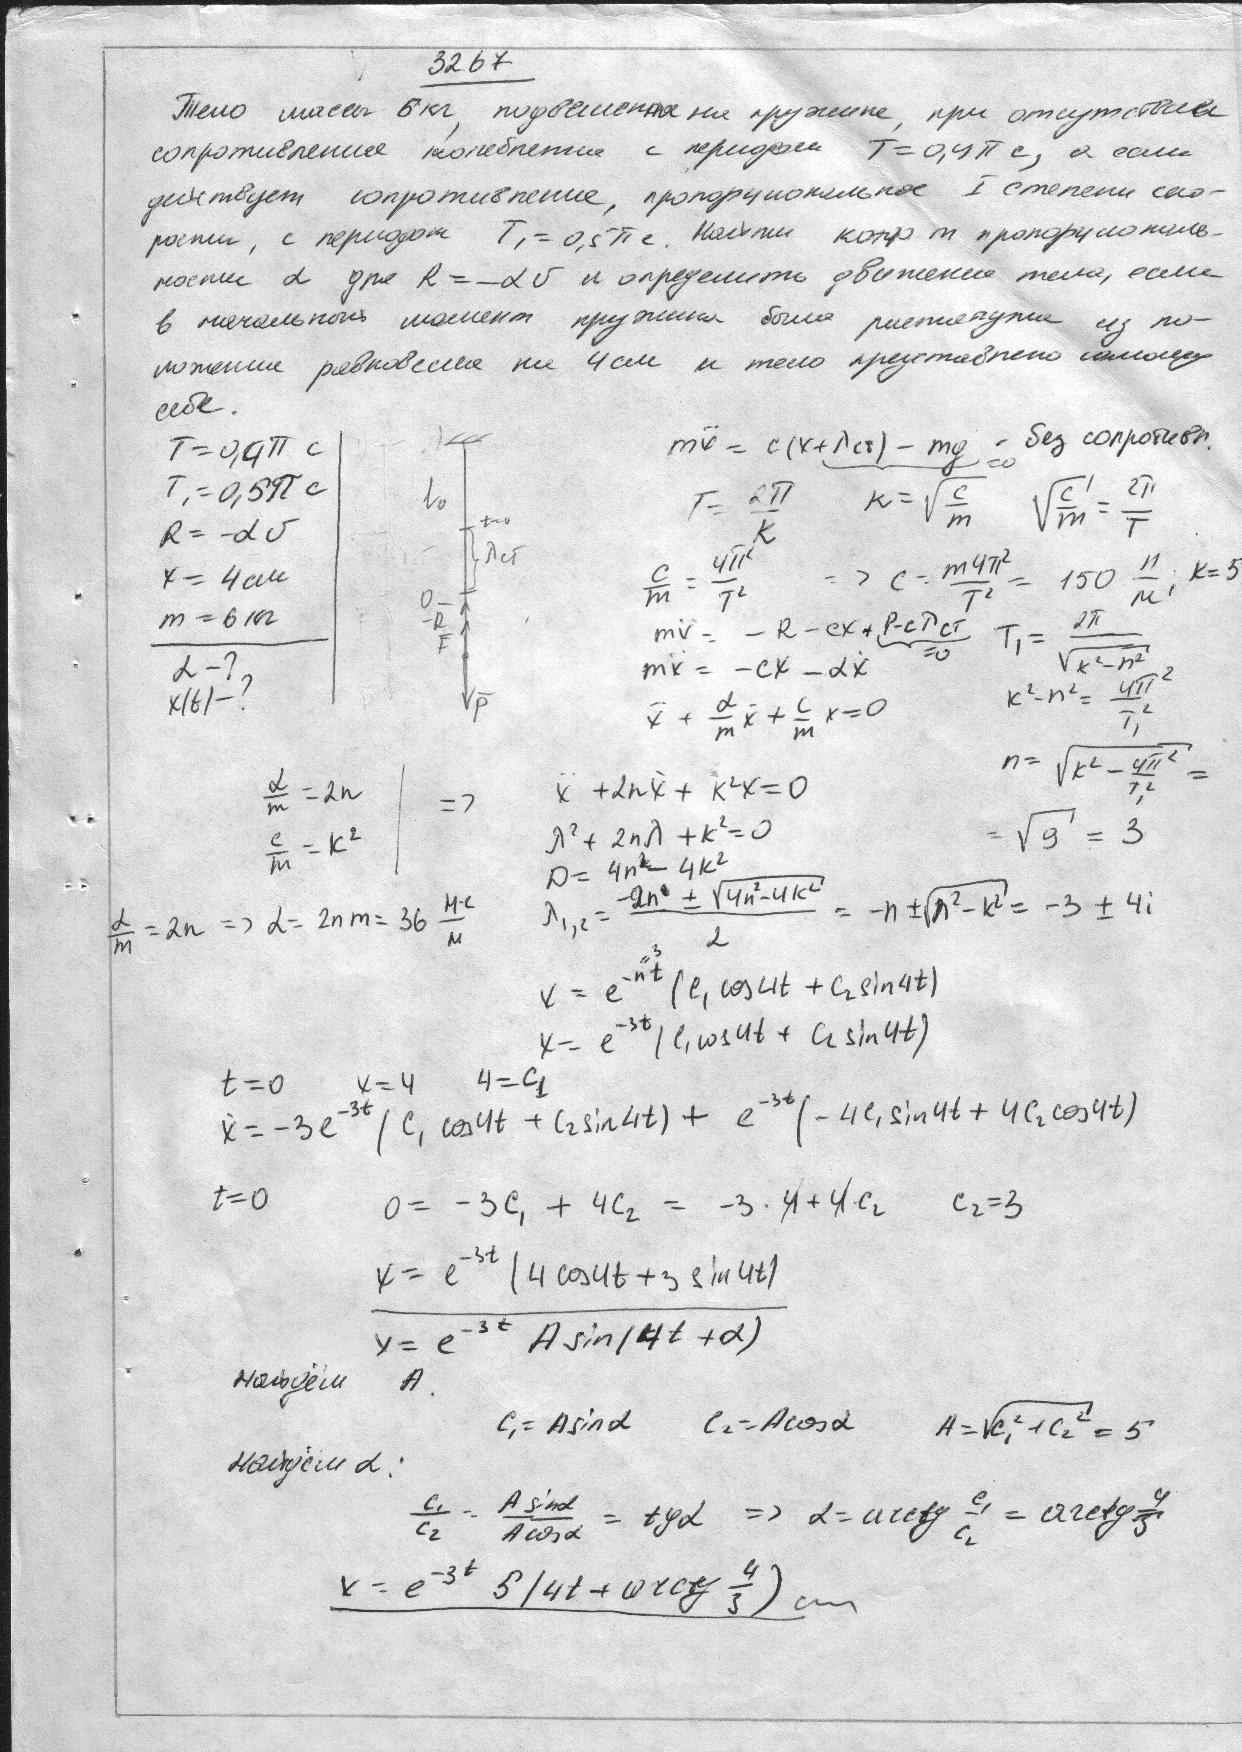 3267
Тело массы 6 кг, подвешенное на пружине, при отсутствии
сопротивления колеблется с периодом T = 0,4π с, а если
действует сопротивление, пропорциональное I степени ско-
рости, с периодом T₁ = 0,5π с. Найти коэф т пропорциональ-
ности α для R = -αv и определить движение тела, если
в начальный момент пружина была растянута из по-
ложения равновесия на 4 см и тело предоставлено самому
себе.
T = 0,4π с
T₁ = 0,5π с
R = -αv
x = 4 см
m = 6 кг
α - ?
x(t) - ?
l₀
λст
O
R
F
P̄
mẍ = c(x + λст) - mg = 0 - без сопротивл.
T = 2π/k k = √(c/m) √(c/m) = 2π/T
c/m = 4π²/T² => c = m4π²/T² = 150 н/м; k = 5
mv̇ = -R - cx + P - cλст = 0 T₁ = 2π/√(k² - n²)
mẍ = -cx - αẋ
k² - n² = 4π²/T₁²
ẍ + α/m ẋ + c/m x = 0
n = √(k² - 4π²/T₁²) =
= √9 = 3
α/m = 2n
c/m = k²
=> ẍ + 2nẋ + k²x = 0
λ² + 2nλ + k² = 0
D = 4n² - 4k²
α/m = 2n => α = 2nm = 36 н·с/м
λ₁,₂ = (-2n ± √(4n² - 4k²))/2 = -n ± √(n² - k²) = -3 ± 4i
x = e^(-nt) (c₁ cos4t + c₂ sin4t)
x = e^(-3t) (c₁ cos4t + c₂ sin4t)
t = 0 x = 4 4 = c₁
ẋ = -3e^(-3t) (c₁ cos4t + c₂ sin4t) + e^(-3t) (-4c₁ sin4t + 4c₂ cos4t)
t = 0 0 = -3c₁ + 4c₂ = -3·4 + 4·c₂ c₂ = 3
x = e^(-3t) (4cos4t + 3 sin4t)
x = e^(-3t) A sin(4t + α)
Найдём A.
c₁ = A sinα c₂ = A cosα A = √(c₁² + c₂²) = 5
Найдём α:
c₁/c₂ = A sinα/A cosα = tgα => α = arctg c₁/c₂ = arctg 4/3
x = e^(-3t) 5 (4t + arctg 4/3) cm